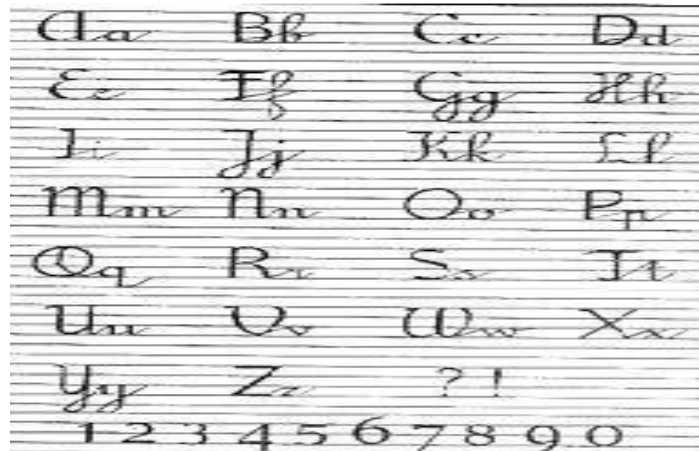 Aa Bb Cc Dd
Ee Ff Gg Hh
Ii Jj Kk Ll
Mm Nn Oo Pp
Qq Rr Ss Tt
Uu Vv Ww Xx
Yy Zz ? !
1 2 3 4 5 6 7 8 9 0